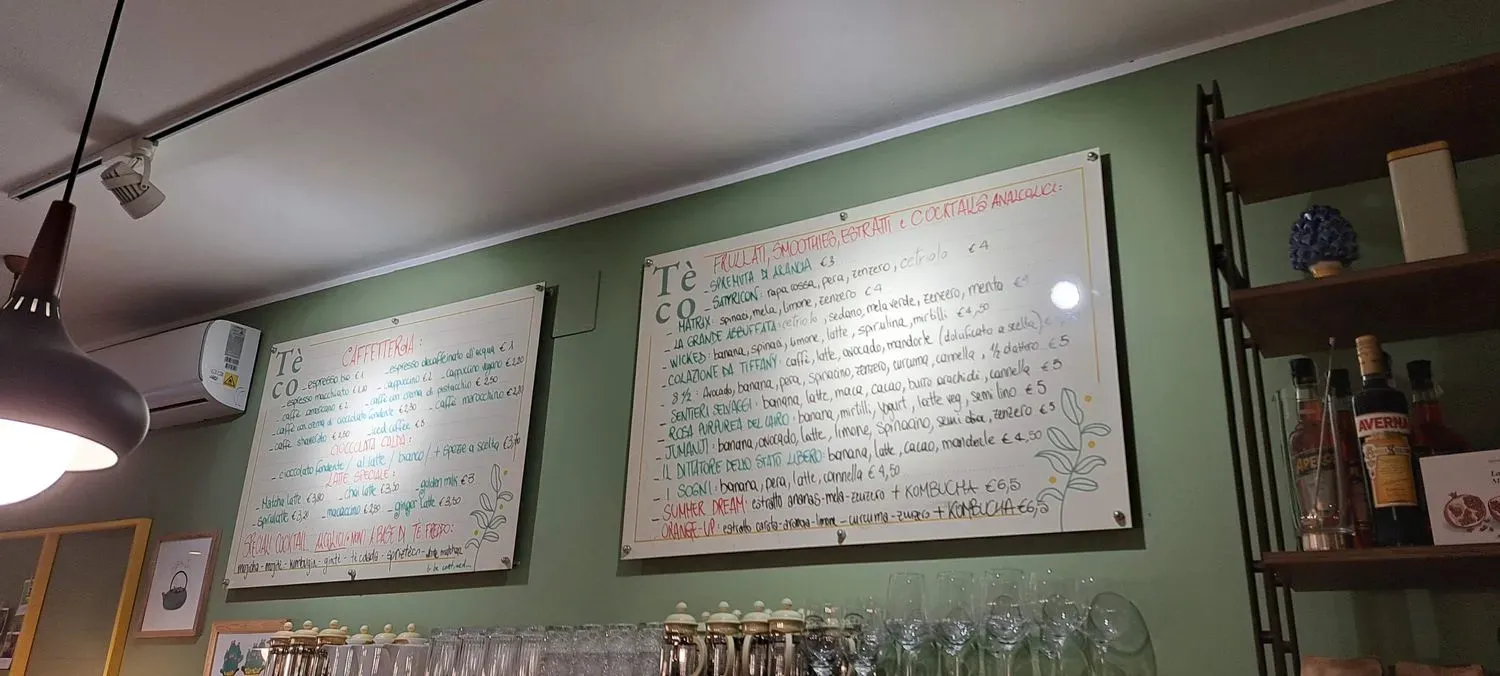 Tè
co
CAFFETTERIA:
- espresso bio € 1 - espresso decaffeinato all'acqua € 1
- espresso macchiato - cappuccino € 2 - cappuccino vegano € 2,20
- caffè americano € 2 - caffè con crema di pistacchio € 2,50
- caffè con crema di cioccolato fondente € 2,50 - caffè marocchino
- caffè shakerato - iced coffee € 3
CIOCCOLATA CALDA:
- cioccolato fondente / al latte / bianco / + spezie a scelta
LATTE SPECIALE:
- Matcha latte - chai latte €3,50 - golden milk €3
- spirulatte - macaccino - ginger latte €3,50
SPECIALI COCKTAIL ALCOLICI E NON A BASE DI TÈ FREDDO:
- mojito - tè colada - sprizteco
to be continued...
Tè
co
FRULLATI, SMOOTHIES, ESTRATTI e COCKTAILS ANALCOLICI:
- SPREMUTA DI ARANCIA €3
- SATYRICON: rapa rossa, pera, zenzero, cetriolo € 4
- MATRIX: spinaci, mela, limone, zenzero € 4
- LA GRANDE ABBUFFATA: cetriolo, sedano, mela verde, zenzero, menta €
- WICKED: banana, spinaci, limone, latte, spirulina, mirtilli € 4,50
- COLAZIONE DA TIFFANY: caffè, latte, avocado, mandorle (dolcificato a scelta) €
- 8 ½: Avocado, banana, pera, spinacino, zenzero, curcuma, cannella, ½ dattero €5
- SENTIERI SELVAGGI: banana, latte, maca, cacao, burro arachidi, cannella €5
- ROSA PURPUREA DEL CAIRO: banana, mirtilli, yogurt, latte veg, semi lino €5
- JUMANJI: banana, avocado, latte, limone, spinacino, semi chia, zenzero €5
- IL DITTATORE DELLO STATO LIBERO: banana, latte, cacao, mandorle € 4,50
- I SOGNI: banana, pera, latte, cannella € 4,50
- SUMMER DREAM: estratto ananas-mela-zenzero + KOMBUCHA €6,5
- ORANGE UP: estratto carota-arancia-limone-curcuma-zenzero + KOMBUCHA €6,5
AVERNA